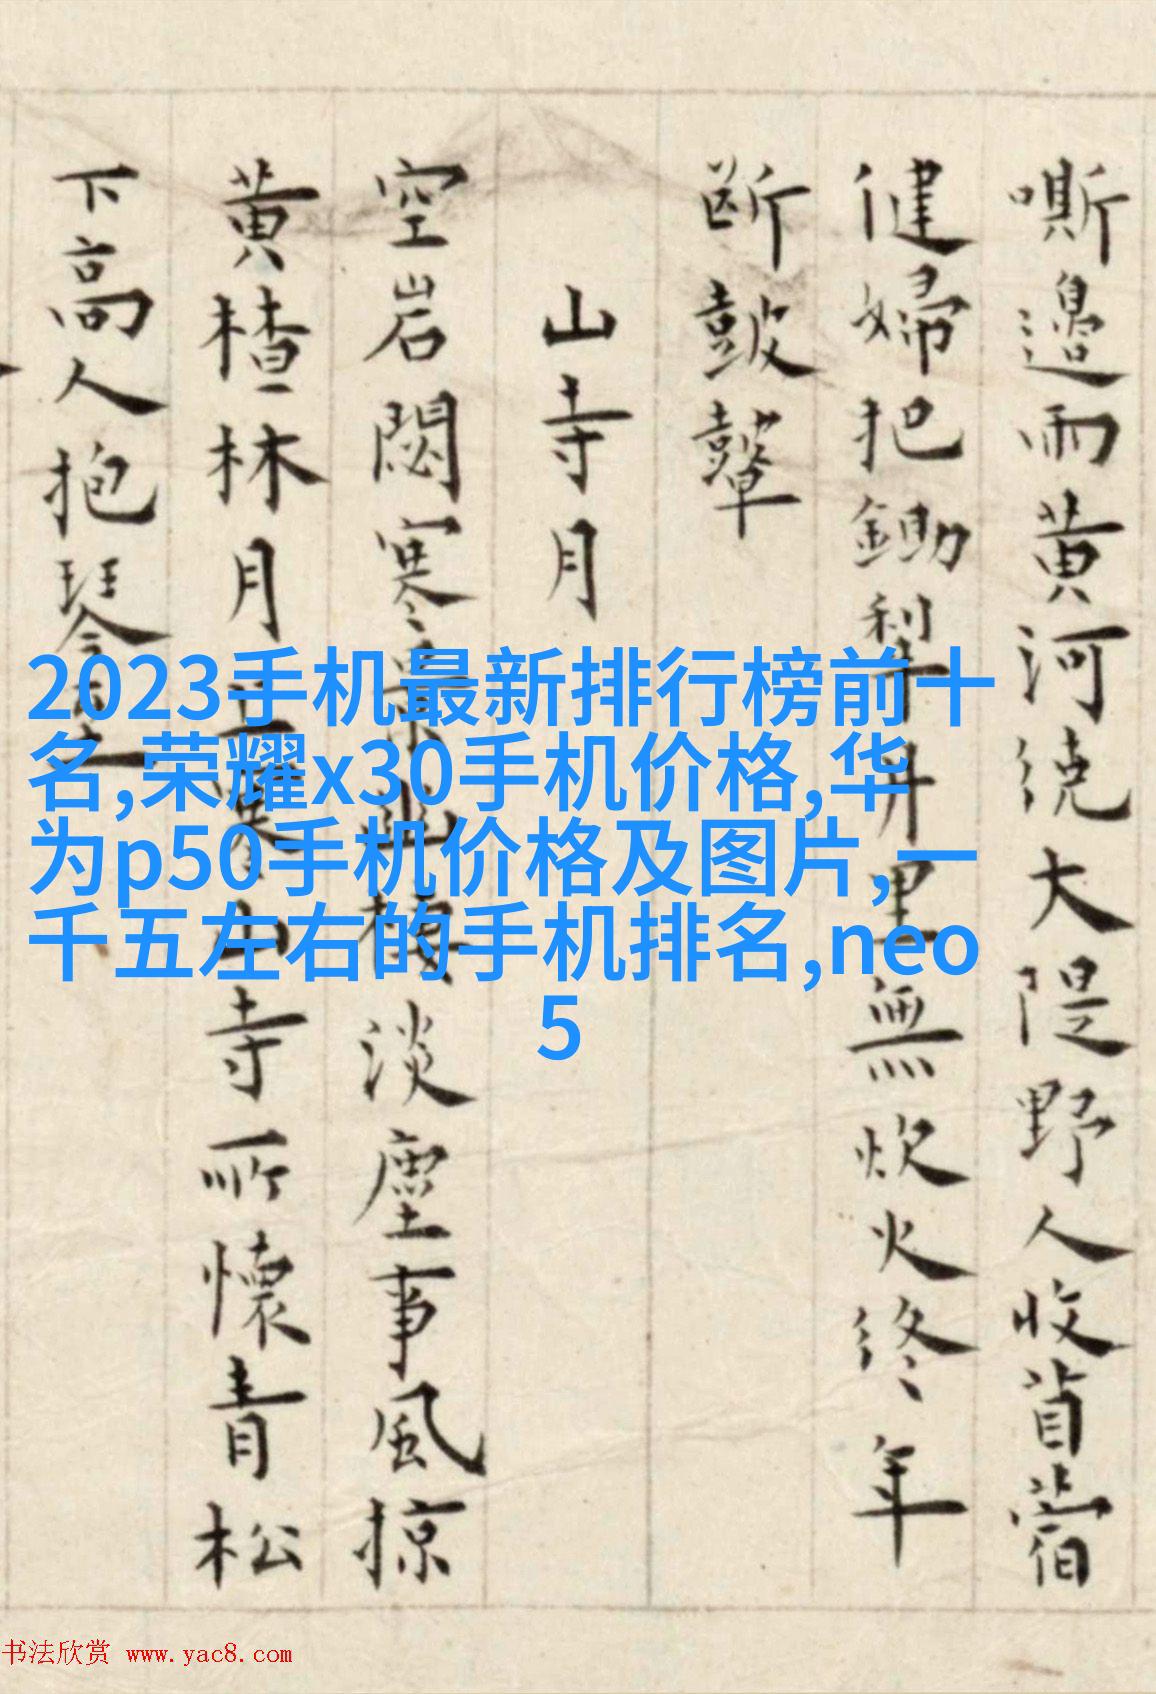 嘶邊雨黄河绕大隄野人收苜蓿
健婦把鋤犁井里無炊火終年
断鼓鼙
山寺月
空岩閟寒景棲淡塵事風掠
黄楂林月上寒山寺所懷青松
下高人抱琴至
2023手机最新排行榜前十
名,荣耀x30手机价格,华
为p50手机价格及图片,一
千五左右的手机排名,neo
5
书法欣赏 www.yac8.com